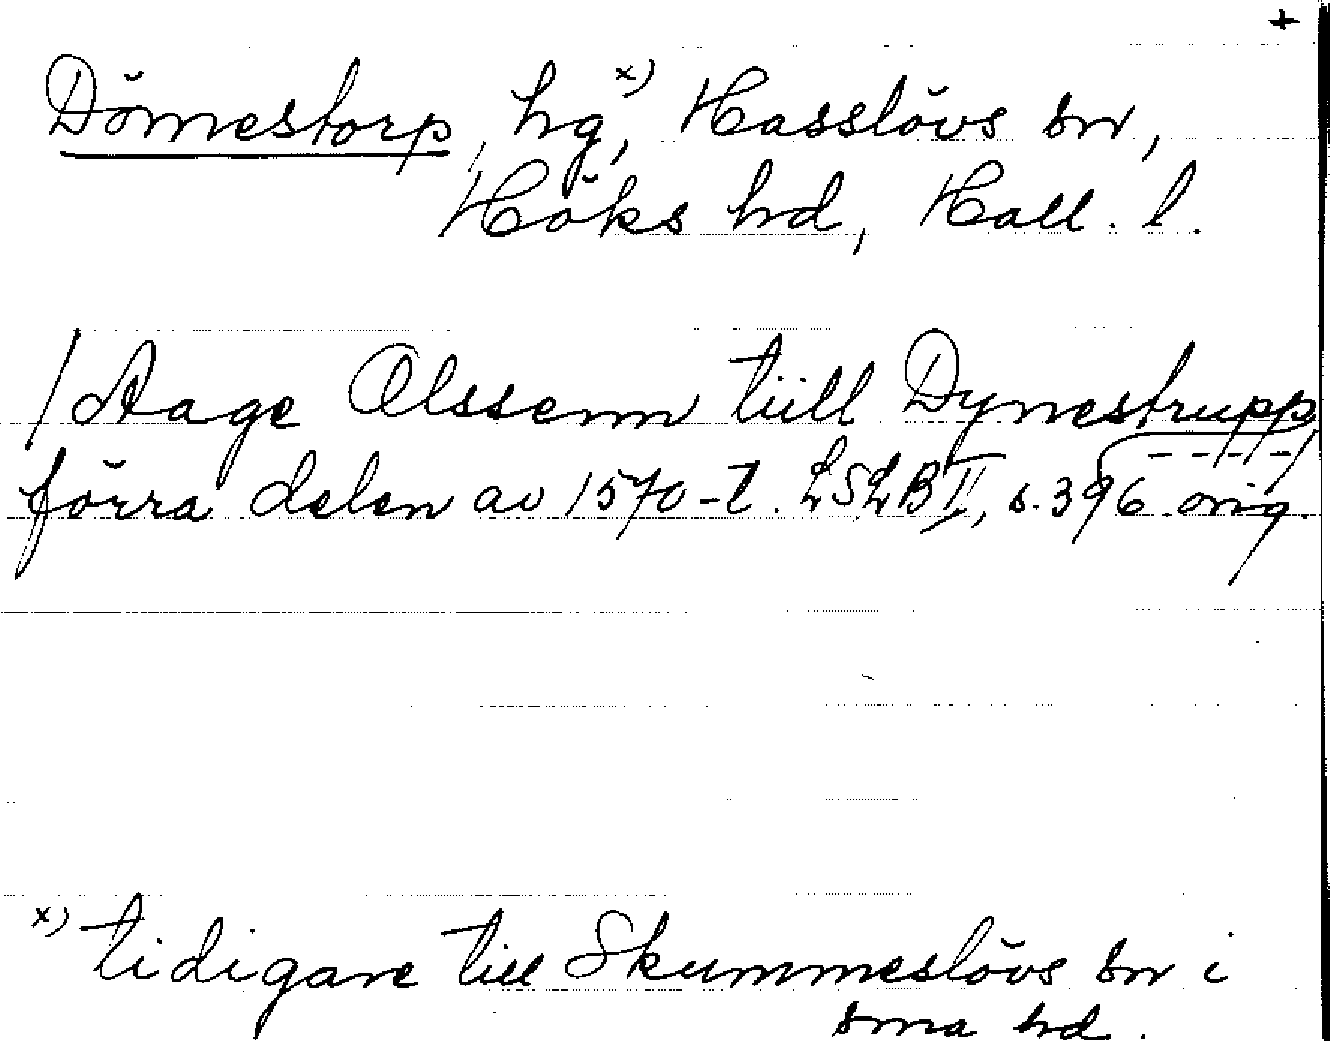 +
Dömestorp, hg,x) Hasslövs sn,
Höks hd, Hall. l.
/Aage Olssenn tiill Dynestrupp
förra delen av 1570-t. LSLB II, s. 396 orig.
x) tidigare till Skummeslövs sn i
sma hd.